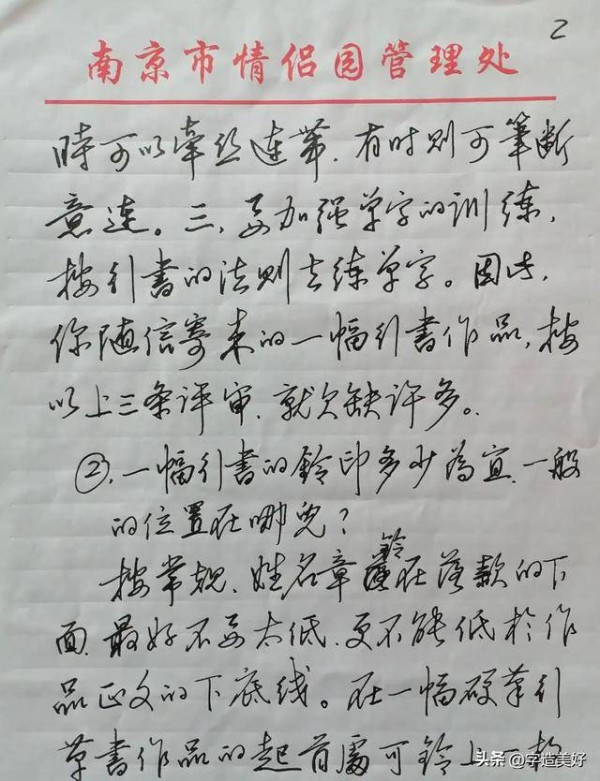 2
南京市情侣园管理处
時可以牵丝连带,有时则可筆断
意连。三,要加强单字的训练,
按行書的法则去练单字。因此,
你随信寄来的一幅行書作品,按
以上三条评审,就欠缺许多。
②,一幅行書的鈐印多少為宜,一般
的位置在哪兒?
按常规,姓名章鈐在落款的下
面,最好不要太低,更不能低於作
品正文的下底线。在一幅硬筆行
草書作品的起首處可鈐上一枚
头条@字造美好